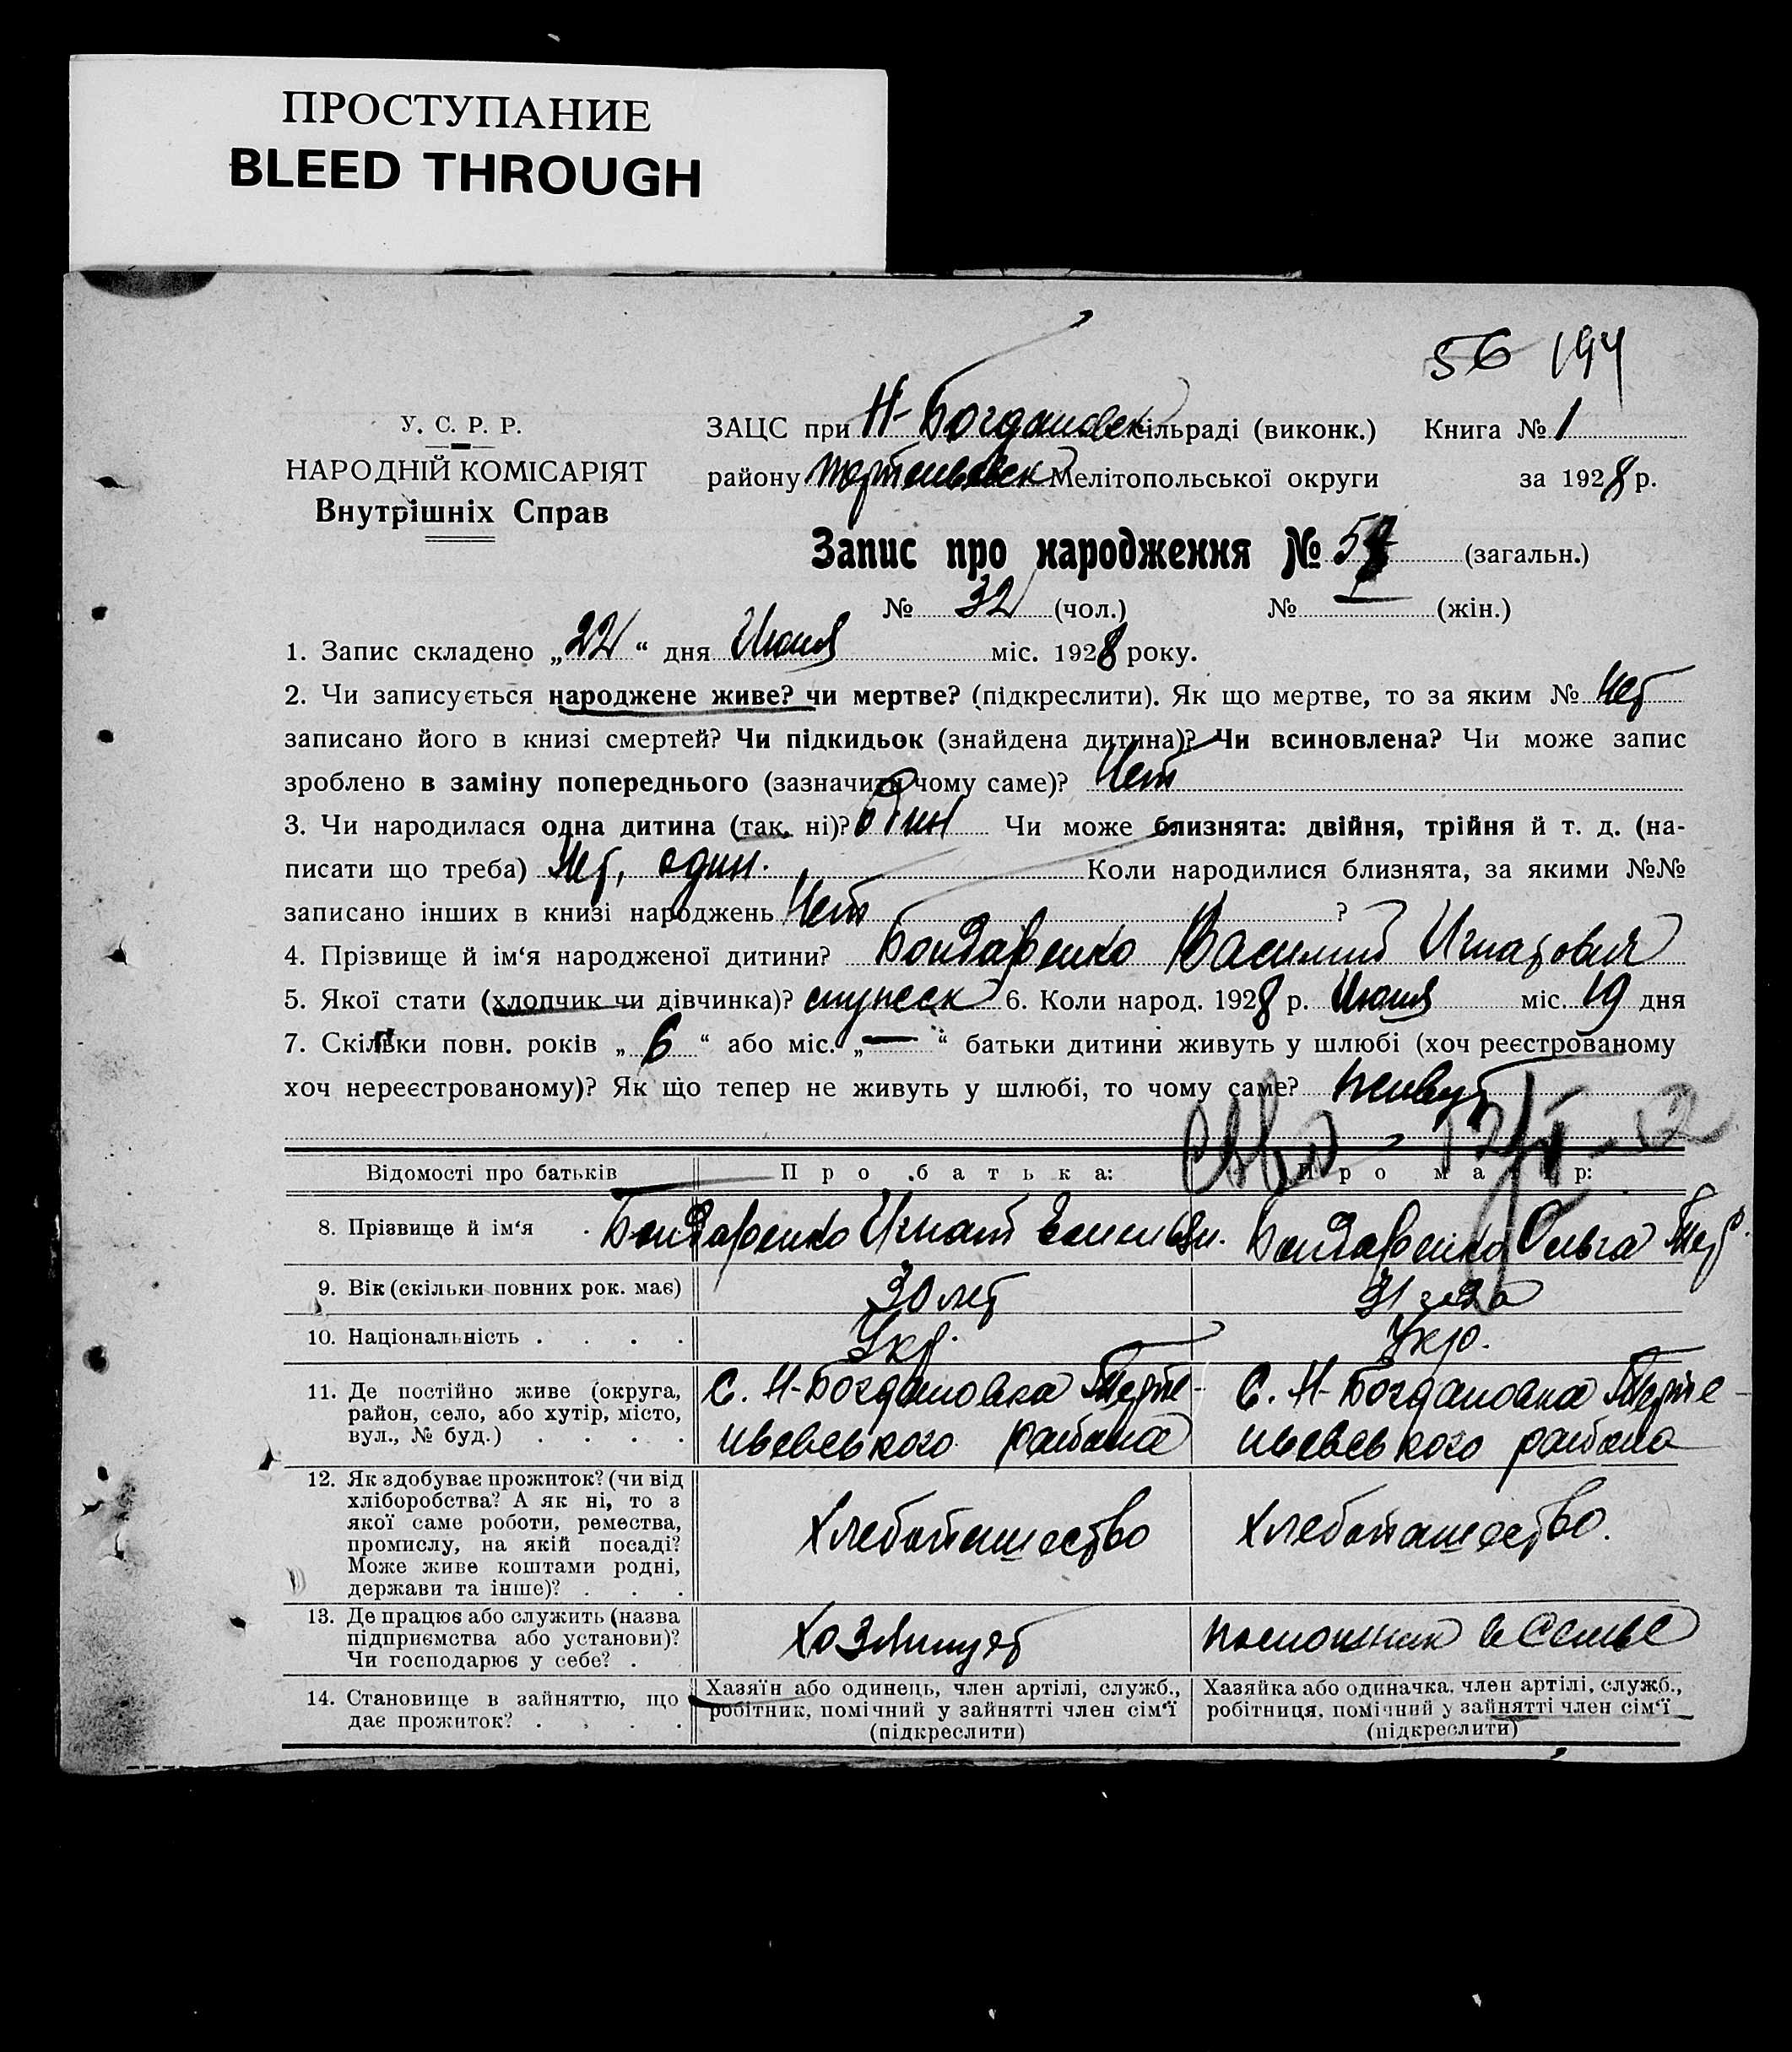 ПРОСТУПАНИЕ
BLEED THROUGH
56 194
У. С. Р. Р.
НАРОДНІЙ КОМІСАРІЯТ
Внутрішніх Справ
ЗАЦС при Н-Богдановск сільраді (виконк.) Книга № 1
району Мелітопольської округи за 1928 р.
Запис про народження № (загальн.)
№ 32 (чол.) № — (жін.)
1. Запис складено „22“ дня міс. 1928 року.
2. Чи записується народжене живе? чи мертве? (підкреслити). Як що мертве, то за яким № Нет
записано його в книзі смертей? Чи підкидьок (знайдена дитина)? Чи всиновлена? Чи може запис
зроблено в заміну попереднього (зазначити чому саме)? Нет
3. Чи народилася одна дитина (так, ні)? один Чи може близнята: двійня, трійня й т. д. (на-
писати що треба) Нет, один. Коли народилися близнята, за якими №№
записано інших в книзі народжень Нет ?
4. Прізвище й ім‘я народженої дитини? Бондаренко Василий Игнатович
5. Якої стати (хлопчик чи дівчинка)? 6. Коли народ. 1928 р. міс. 19 дня
7. Скільки повн. років „6“ або міс. „—“ батьки дитини живуть у шлюбі (хоч реєстрованому
хоч нереєстрованому)? Як що тепер не живуть у шлюбі, то чому саме? Живут
Відомості про батьків Про батька: Про матір:
8. Прізвище й ім‘я . Бондаренко Игнат Бондаренко Ольга
9. Вік (скільки повних рок. має) 30 лет 31 года
10. Національність . . . . Укр. Укр.
11. Де постійно живе (округа, район, село, або хутір, місто, вул., № буд.) . . . .
С. Н-Богдановка Терпе-
ньевського района
С. Н-Богдановка Терпе-
ньевського района
12. Як здобуває прожиток? (чи від хліборобства? А як ні, то з якої саме роботи, ремества, промислу, на якій посаді? Може живе коштами родні, держави та інше)? . . .
Хлебопашество
Хлебопашество.
13. Де працює або служить (назва підприємства або установи)? Чи господарює у себе? .
Хозяинует
помощник в семье
14. Становище в зайняттю, що дає прожиток? . . . .
Хазяїн або одинець, член артілі, служб., робітник, помічний у зайнятті член сім‘ї (підкреслити)
Хазяйка або одиначка, член артілі, служб., робітниця, помічний у зайнятті член сім‘ї (підкреслити)